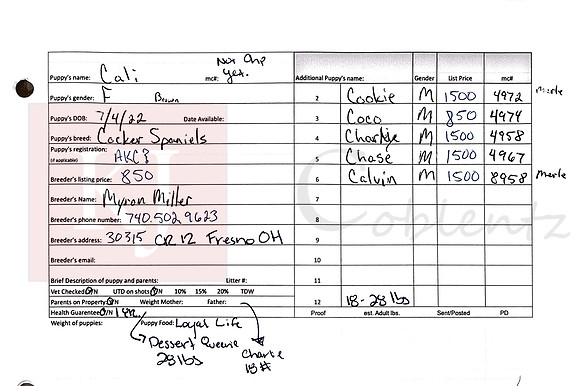 Not Chip
yet.
Puppy's name: Cali mc#: Additional Puppy's name: Gender List Price mc#
Puppy's gender: F Brown 2 Cookie M 1500 4972 Merle
Puppy's DOB: 7/4/22 Date Available: 3 Coco M 850 4974
Puppy's breed: Cocker Spaniels 4 M 1500 4958
Puppy's registration:
(if applicable) AKC? 5 Chase M 1500 4967
Breeder's listing price: 850 6 Calvin M 1500 8958 Merle
Breeder's Name: Myron Miller 7
Breeder's phone number: 740.502.9623 8
Coblentz
Breeder's address: 30315 CR 12 Fresno OH 9
Breeder's email: 10
Brief Description of puppy and parents: Litter #: 11
Vet Checked Y/N UTD on shots Y/N 10% 15% 20% TDW
Parents on Property Y/N Weight Mother: Father: 12 18-28 lbs
Health Guarentee Y/N 1 yr. Proof est. Adult lbs. Sent/Posted PD
Weight of puppies: Puppy Food: Loyal Life
Dessert Queenie Charlie
28 lbs 18#